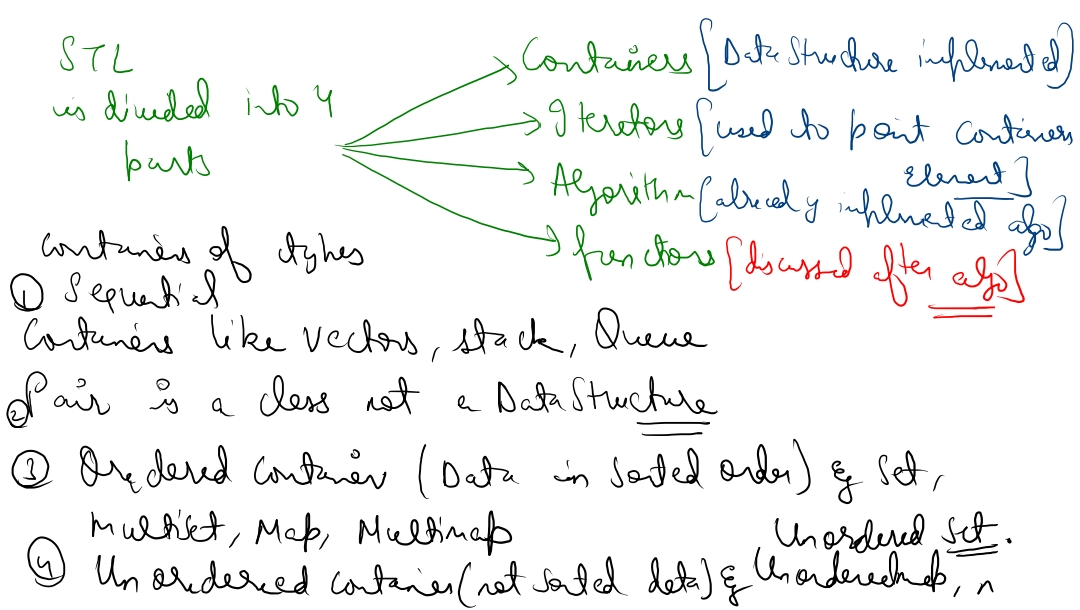 STL
is divided into 4
parts
Containers [Data Structure implemented]
Iterators [used to point Containers
Element]
Algorithm [already implemented algo]
functors [discussed after algo]
Containers of types
① Sequential
Containers like vectors, stack, Queue
② Pair is a class not a Data Structure
③ Ordered Container (Data in Sorted order) & Set,
Multiset, Map, Multimap
Unordered Set.
④ Unordered container (not sorted data) & Unorderedmap,